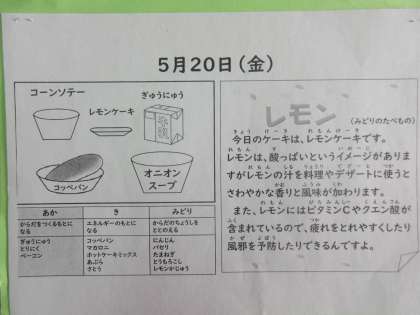 5月20日(金)
コーンソテー
レモンケーキ
ぎゅうにゅう
牛乳
コッペパン
オニオン
スープ
あか
き
みどり
からだをつくるもとに
なる
エネルギーのもとに
なる
からだのちょうしを
ととのえる
ぎゅうにゅう
とりにく
ベーコン
コッペパン
マカロニ
ホットケーキミックス
あぶら
さとう
にんじん
パセリ
たまねぎ
とうもろこし
レモンかじゅう
レモン
(みどりのたべもの)
今日のケーキは、レモンケーキです。
レモンは、酸っぱいというイメージがありま
すがレモンの汁を料理やデザートに使うと
さわやかな香りと風味が加わります。
また、レモンにはビタミンCやクエン酸が
含まれているので、疲れをとれやすくしたり
風邪を予防したりできるんですよ。